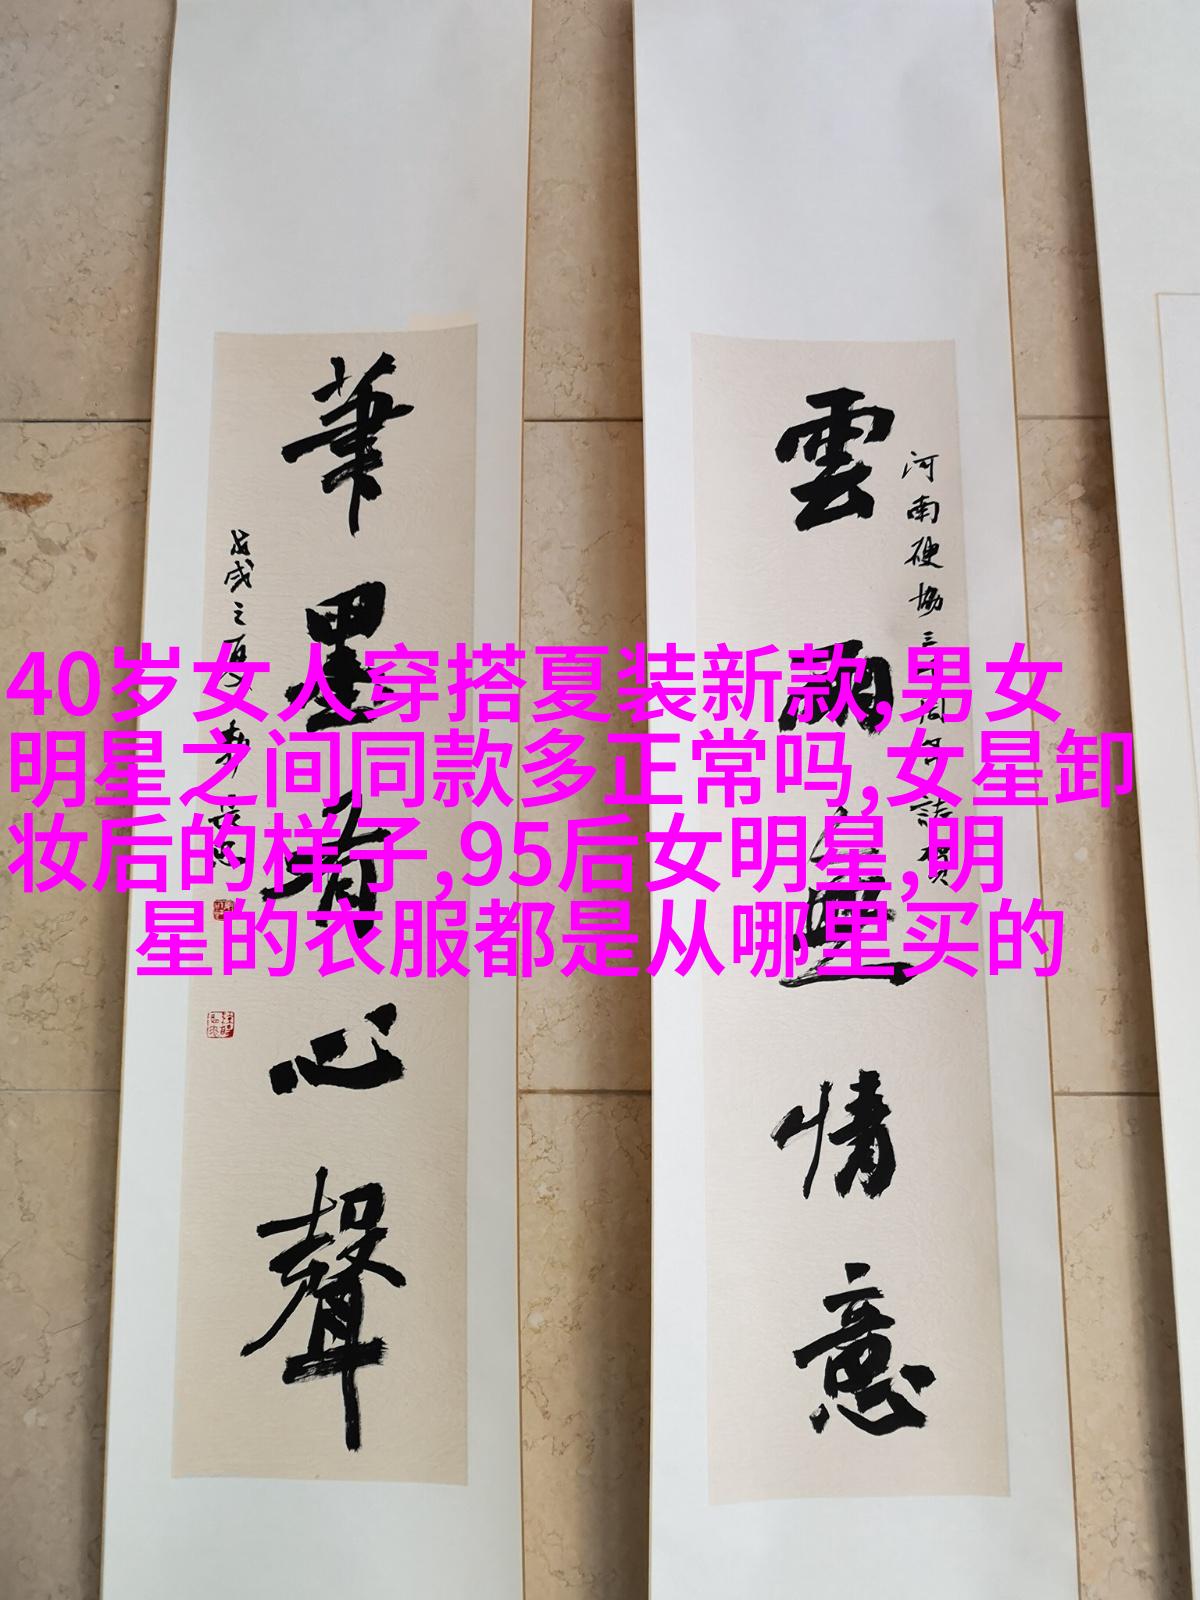 雲烟無情意
河南硬協三十周年誌賀
筆墨有心聲
戊戌之夏
40岁女人穿搭夏装新款,男女
明星之间同款多正常吗,女星卸
妆后的样子,95后女明星,明
星的衣服都是从哪里买的